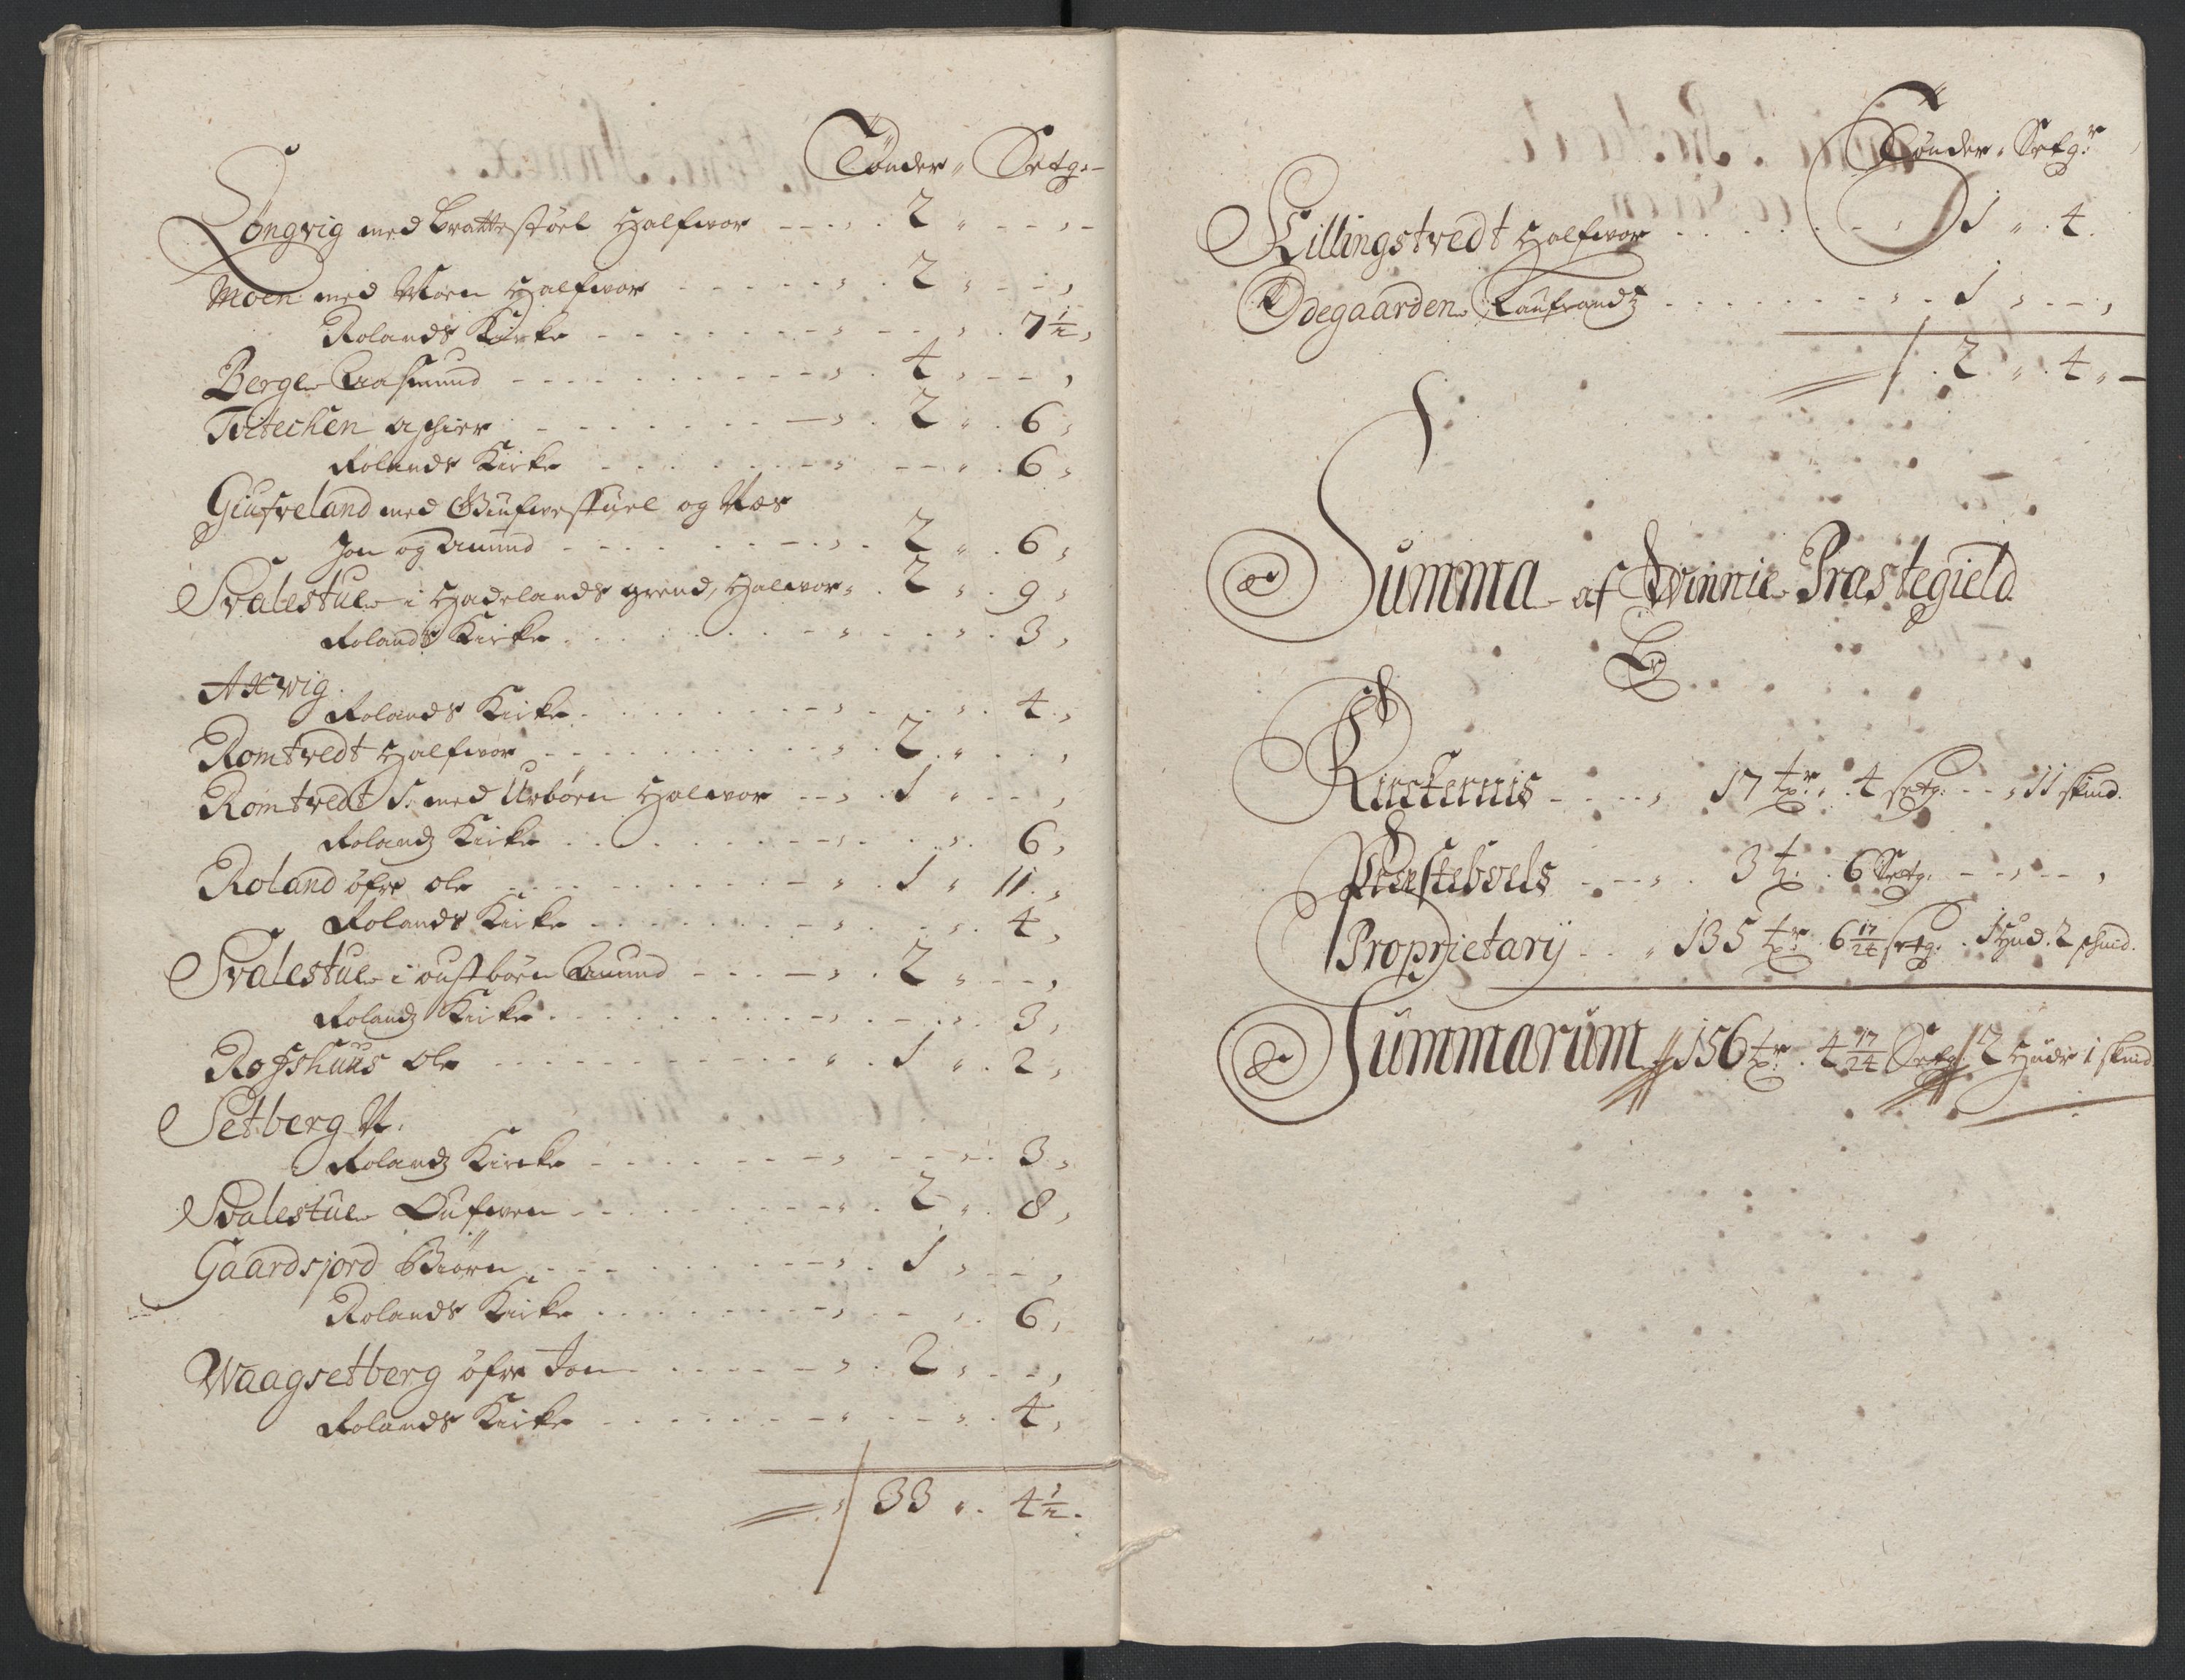 Tönder " Setg:
Longvig med Brattestöel Halfwor - - - 2 " - - -
Moen med Moen Halfwor - - - 2 " - - -
Rolands Kirke - - - 7 1/2,
Berge Aasmund - - - 4 " - - -
Tvitechen Aschier - - - 2 " 6,
Rolands Kirke - - - 6,
Giufveland med og Næs
Jon og Amund - - - 2 " 6,
Svalestue i Hadelands grend, Halvor " 2 " 9,
Rolands Kirke - - - 3,
Axwig.
Rolands Kirke - - - 4,
Romtvedt Halfwor - - - 2 " - - -
Romtvedt S. med Urbörn Halvor - - - 1 " - - -
Rolandz Kirke - - - 6,
Roland öfre Ole - - - 1 " 11,
Rolands Kirke - - - 4,
Svalestue i oustbörn Amund - - - 2 " - - -
Rolandz Kirke - - - 3,
Rosshuus Ole - - - 1 " 2,
Setberg N.
Rolandz Kircke - - - 3,
Svalestue - - - 2 " 8,
Gaardsjord Biörn - - - 1 " - - -
Rolands Kirke - - - 6,
Waagsetberg öfre Jon - - - 2 " - - -
Rolands Kirke - - - 4,
33 " 4 1/2.
Tönder " Setg:r
Killingstvedt Halfwor - - - 1 " 4.
Ödegaarden - - - 1 " - - -
2 " 4 " -
Summa af Winnie Præstegield
Er
Kirckernis - - - 17 tr. 4 setg: - - - 11 skind.
Presteboels - - - 3 t. 6 Setg. - - -
Proprietarij - - - 135 tr. 6 17/24 setg. 1 Hud. 2 skind.
Summarum 156 tr. 4 17/24 Setg. 2 Huder 1 skind